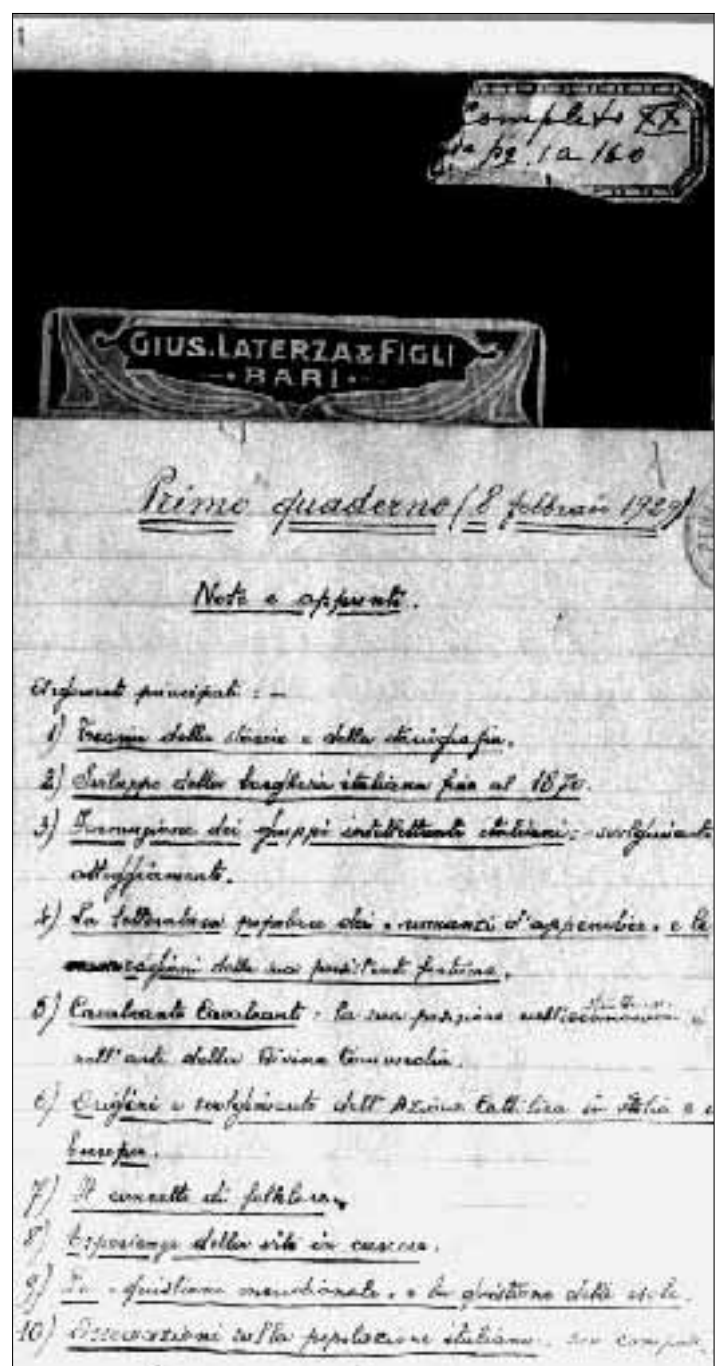 1
Completo XX
da pg. 1 a 160
GIUS. LATERZA & FIGLI
• BARI •
Primo quaderno (8 febbraio 1929)
Note e appunti.
Argomenti principali: –
1) Teoria della storia e della storiografia.
2) Sviluppo della borghesia italiana fino al 1870.
3) Formazione dei gruppi intellettuali italiani: svolgimento
atteggiamenti.
4) La letteratura popolare dei «romanzi d'appendice» e le
ragioni della sua persistente fortuna.
5) Cavalcante Cavalcanti: la sua posizione nell'economia e
nell'arte della Divina Commedia.
6) Origini e svolgimento dell'Azione Cattolica in Italia e
Europa.
7) Il concetto di folklore.
8) Esperienze della vita in carcere.
9) La «quistione meridionale» e la quistione delle isole.
10) Osservazioni sulla popolazione italiana: